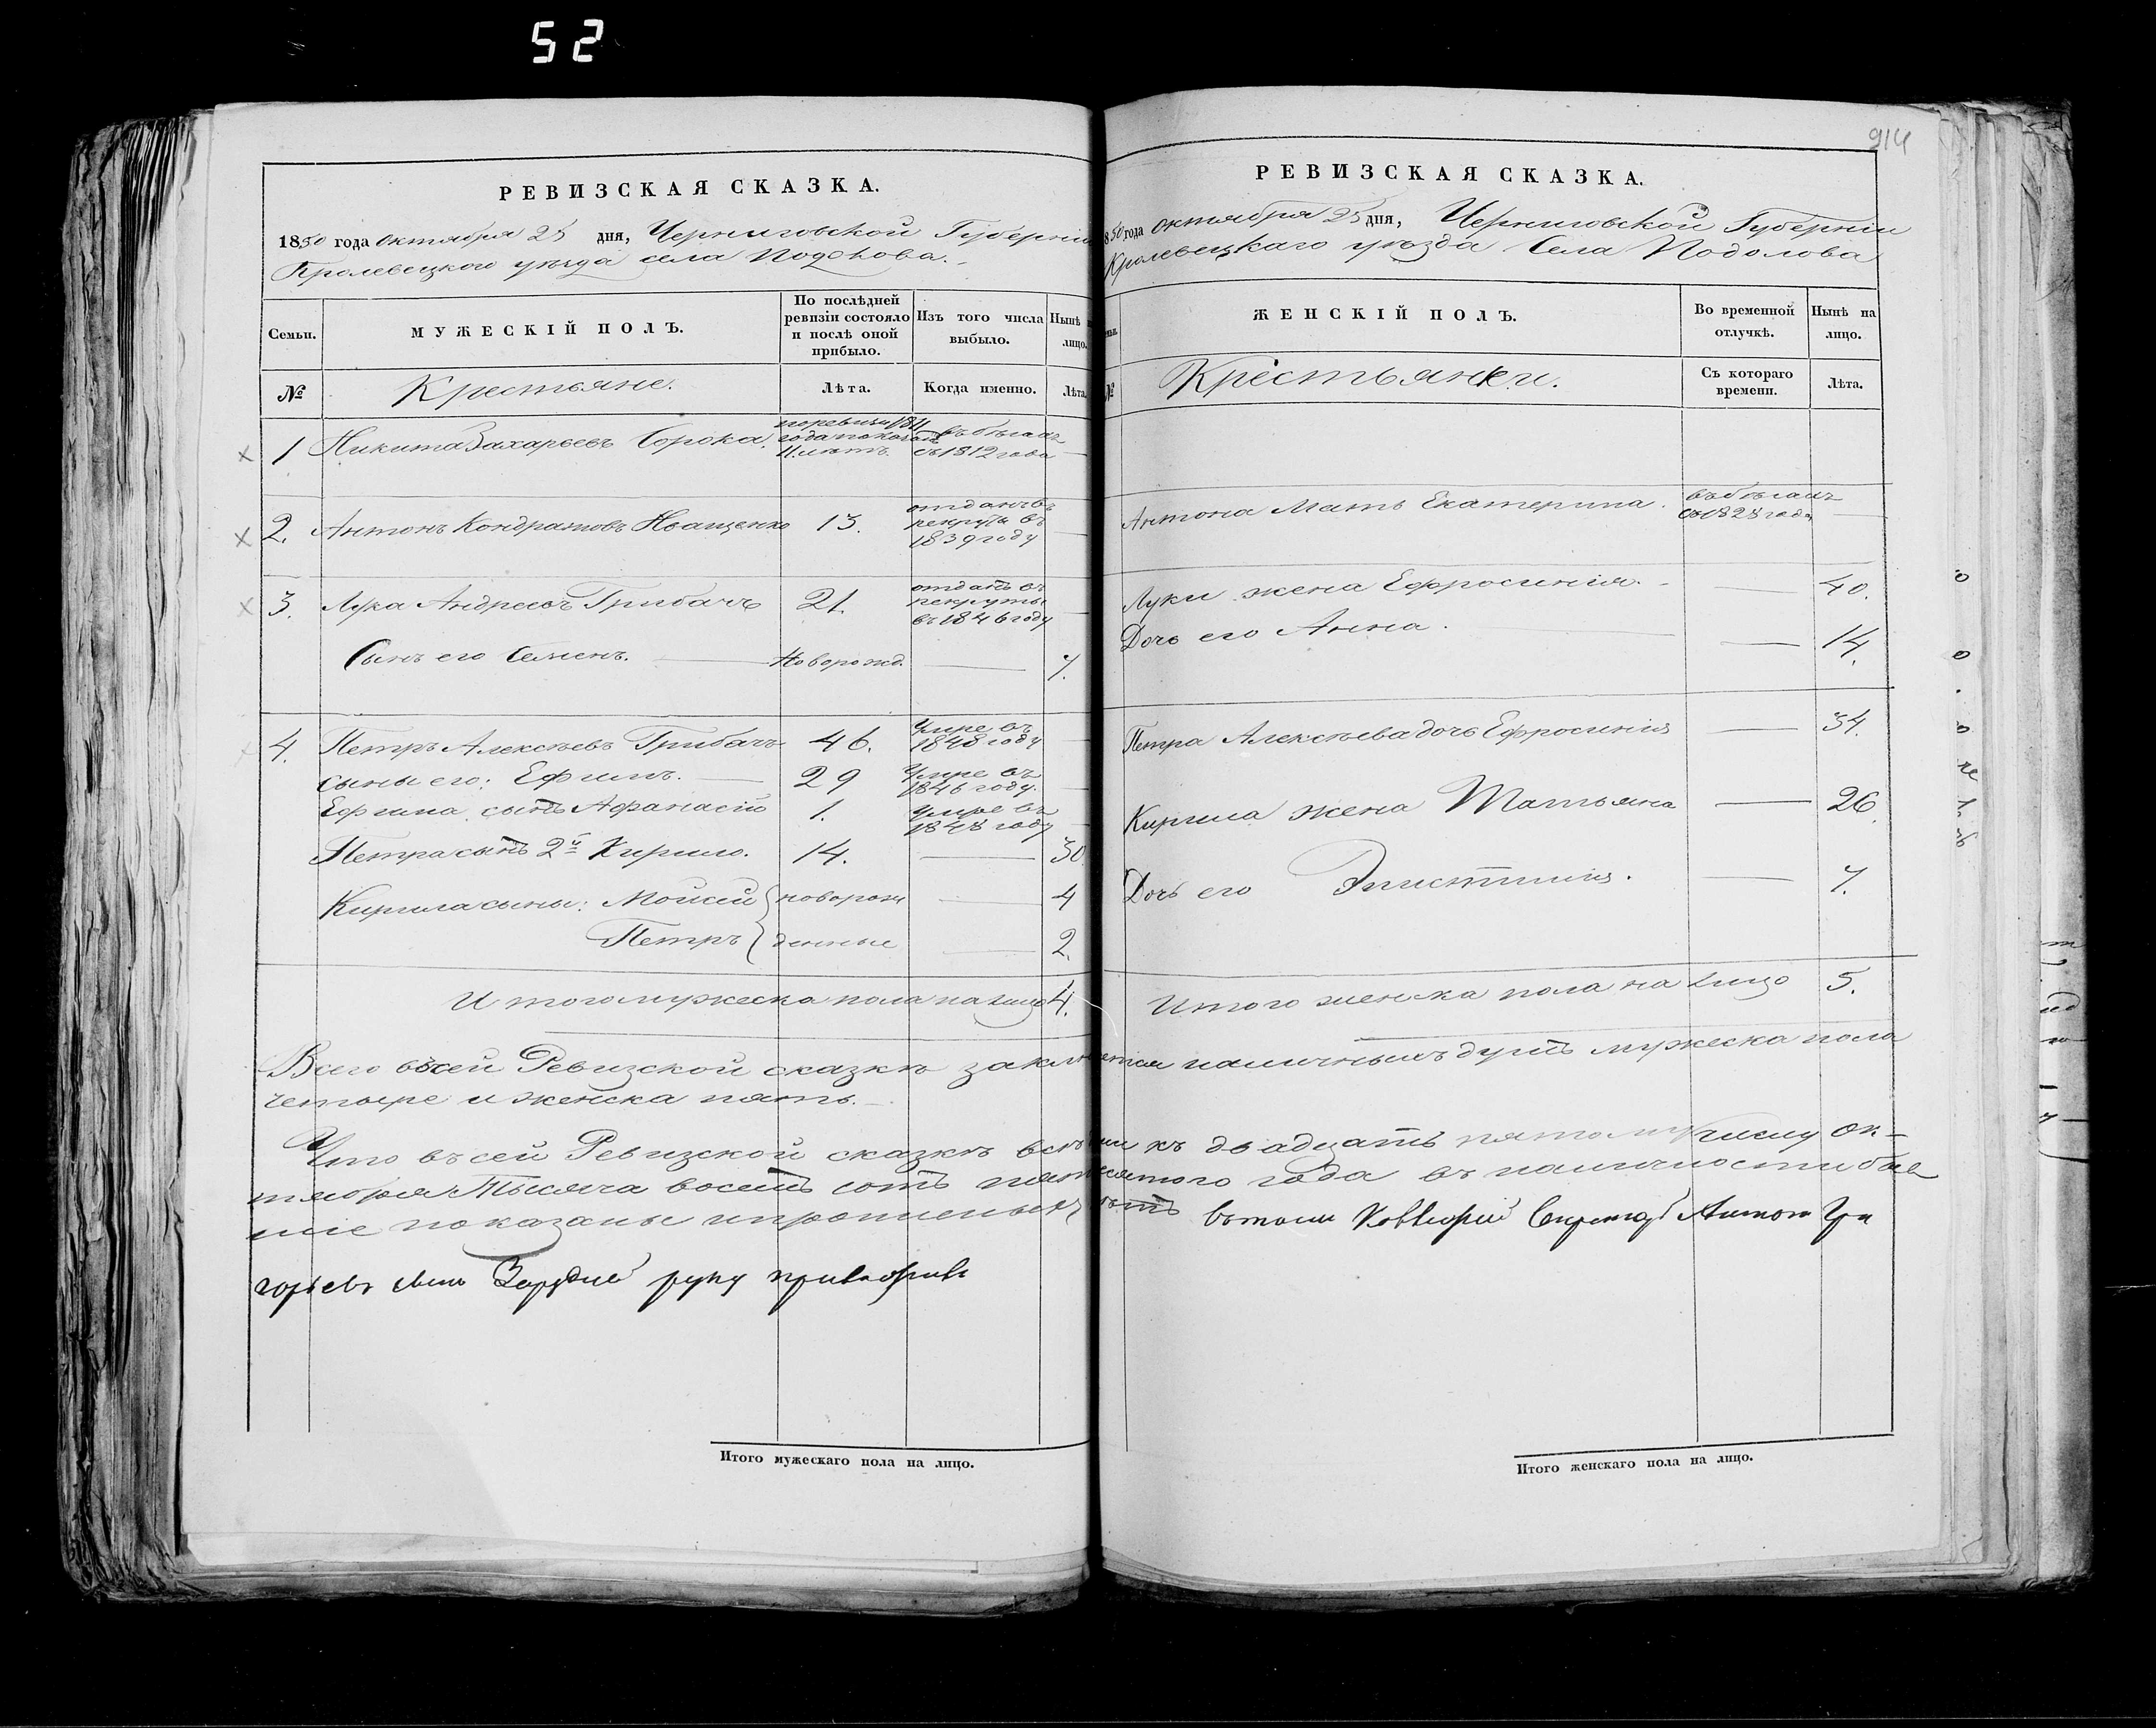 52
914
РЕВИЗСКАЯ СКАЗКА.
1850 года октября 25 дня, Черниговской Губерніи
Кролевецкого уѣзда села Подолова.
Семьи.
МУЖЕСКІЙ ПОЛЪ.
По послѣдней ревизіи состояло и послѣ оной прибыло.
Изъ того числа выбыло.
Нынѣ на лицо.
№
Крестьяне.
Лѣта.
Когда именно.
Лѣта.
1 Никита Захарьевъ Сорока. по ревизіи 1811 года показанъ 11. лѣтъ. въ бѣгахъ съ 1812 года
2. Антонъ Кондратовъ Иващенко 13. отданъ въ рекруты въ 1839 году
3. Лука Андреевъ Грибачъ 21. отданъ въ рекруты въ 1846 году
Сынъ его Семенъ. Новорожд. 7.
4. Петръ Алексѣевъ Грибачъ 46. Умре въ 1848 году
сыны его: Ефимъ. 29 Умре въ 1846 году.
Ефима сынъ Афанасій 1. Умре въ 1848 году
Петра сынъ 2й Кирило. 14. 30.
Кирила сыны: Мойсей новорож 4
Петръ денные 2.
Итого мужеска пола на лицо 4.
РЕВИЗСКАЯ СКАЗКА.
850 года октября 25 дня, Черниговской Губерніи
Кролевецкаго уѣзда Села Подолова
ЖЕНСКІЙ ПОЛЪ.
Во временной отлучкѣ.
Нынѣ на лицо.
№
Крестьянки.
Съ котораго времени.
Лѣта.
Антона Мать Екатерина. въ бѣгахъ съ 1828 года
Луки жена Ефросинія. 40.
Дочь его Анна. 14.
Петра Алексѣева дочь Ефросинія 34.
Кирила жена Татьяна 26.
Дочь его 7.
Итого женска пола на лицо 5.
Всего въ сей Ревизской сказкѣ заключается наличныхъ душъ мужеска пола
четыре и женска пять.
Что въ сей Ревизской сказкѣ всѣ къ двадцать пятому числу Ок-
тября Тысяча восемь сотъ пятдесятого года въ наличности быв
шіе показаны и прописныхъ нѣтъ въ томъ Антон Гри
горьевъ сынъ руку приложилъ
Итого мужескаго пола на лицо.
Итого женскаго пола на лицо.